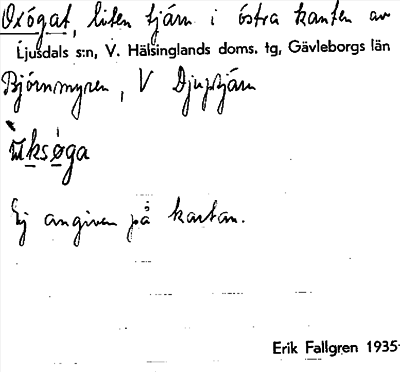 Oxögat, liten tjärn i östra kanten av
Ljusdals s:n, V. Hälsinglands doms. tg, Gävleborgs län
Björnmyren, V Djuptjärn
ùksøga
Ej angiven på kartan.
Erik Fallgren 1935